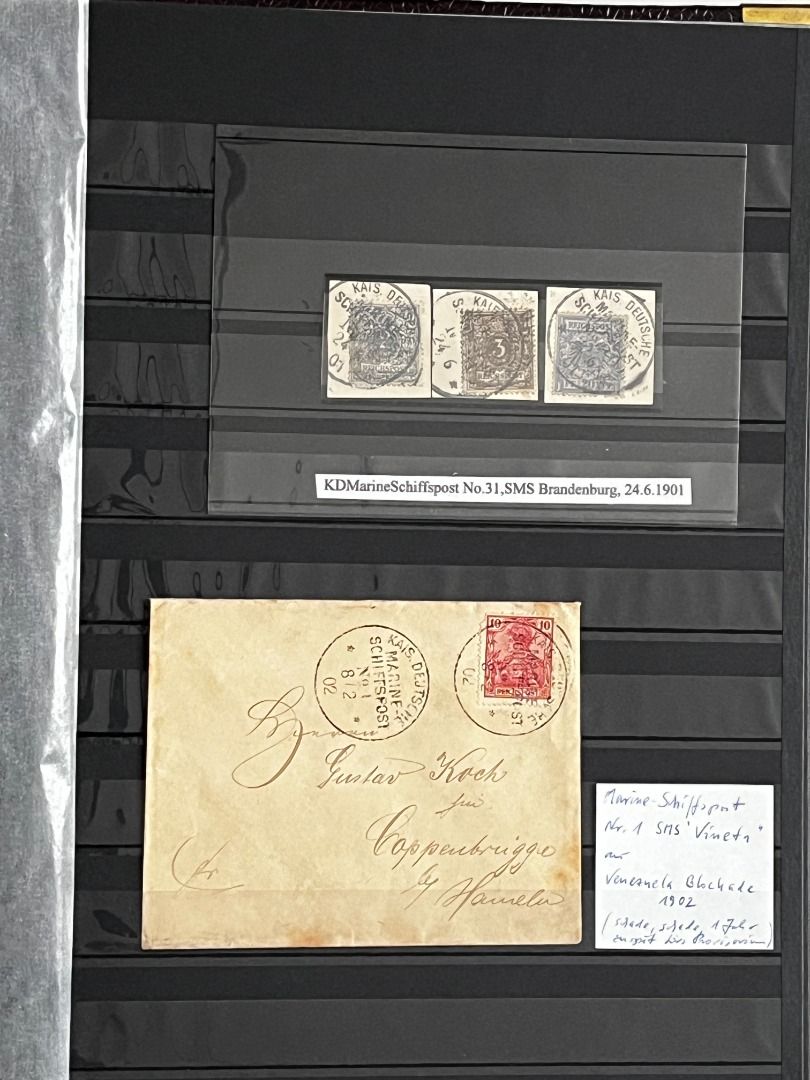 KAIS. DEUTSCHE
SCH
2
01
KAIS.
3
KAIS. DEUTSCHE
REICHSPOST
KDMarineSchiffspost No.31,SMS Brandenburg, 24.6.1901
KAIS. DEUTSCHE
MARINE-
SCHIFFSPOST
No 1
8/2
02
10 10
02
Herrn
Gustav Koch
für
Coppenbrügge
b/
Hameln
fr.
Marine-Schiffspost
Nr. 1 SMS "Vineta"
Venezuela Blockade
1902
(schade, schade, 1 Jahr
zu spät fürs Provisorium)